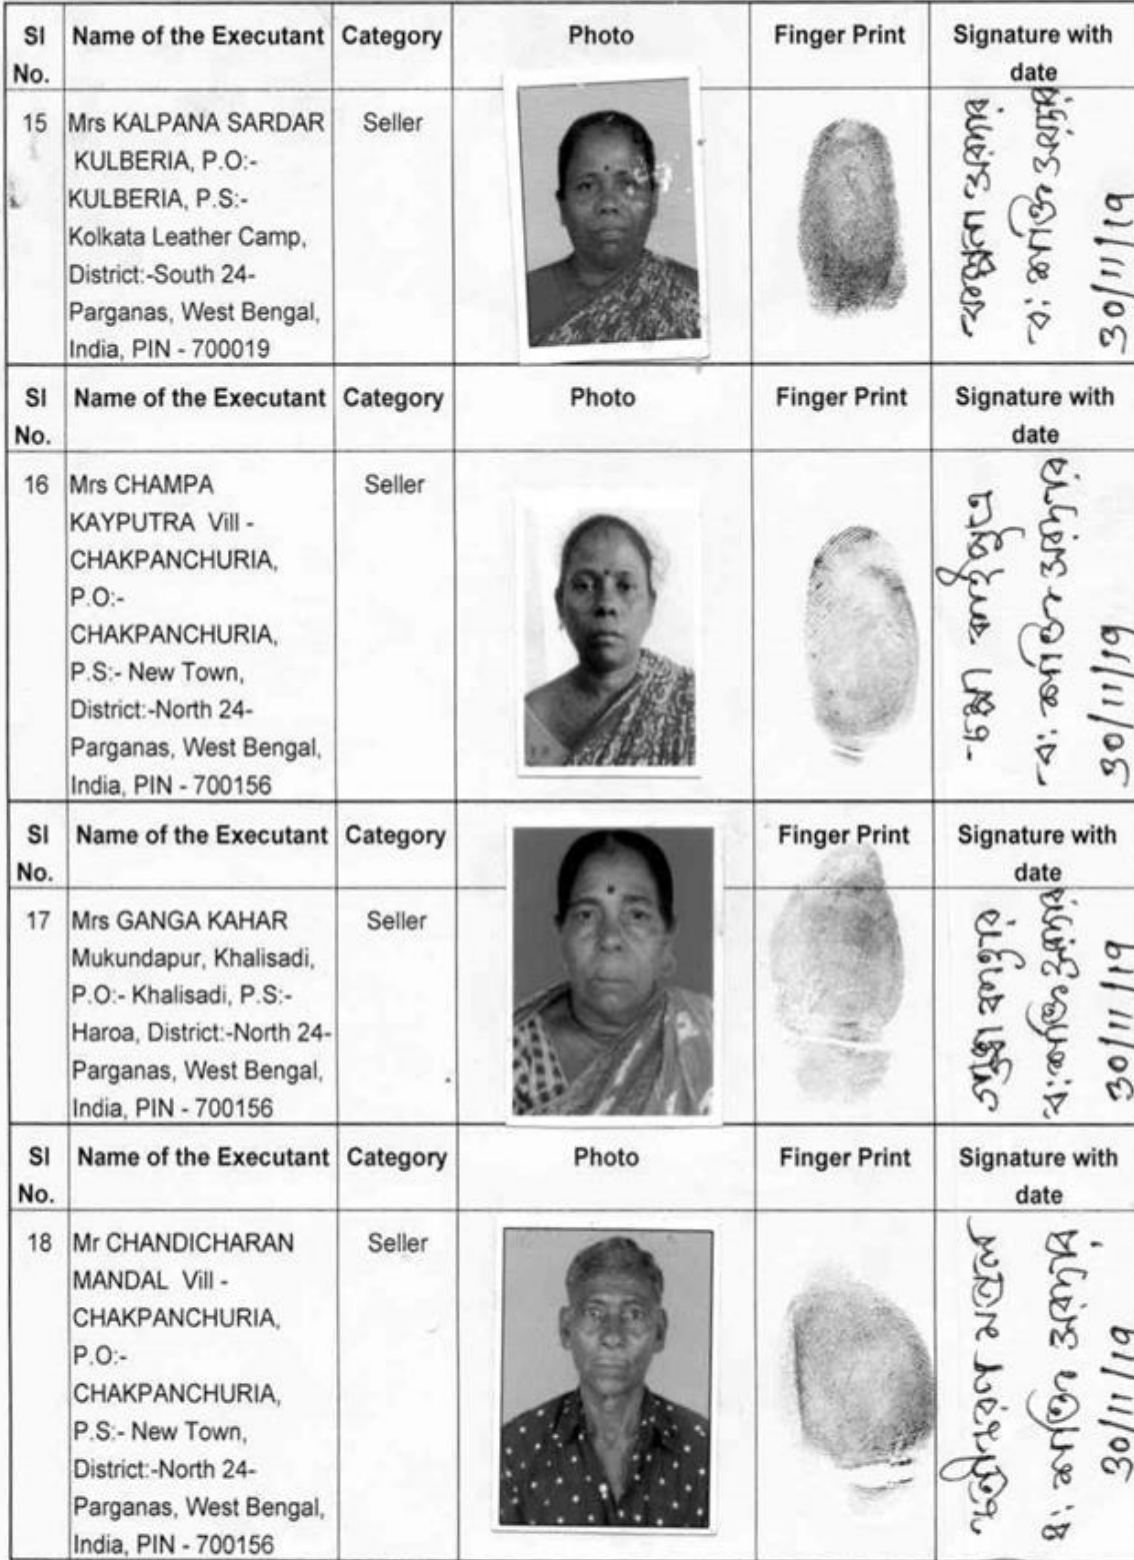 Sl No. Name of the Executant Category Photo Finger Print Signature with date
15 Mrs KALPANA SARDAR Seller
KULBERIA, P.O:-
KULBERIA, P.S:-
Kolkata Leather Camp,
District:-South 24-
Parganas, West Bengal,
India, PIN - 700019
30/11/19
Sl No. Name of the Executant Category Photo Finger Print Signature with date
16 Mrs CHAMPA Seller
KAYPUTRA Vill -
CHAKPANCHURIA,
P.O:-
CHAKPANCHURIA,
P.S:- New Town,
District:-North 24-
Parganas, West Bengal,
India, PIN - 700156
30/11/19
Sl No. Name of the Executant Category Finger Print Signature with date
17 Mrs GANGA KAHAR Seller
Mukundapur, Khalisadi,
P.O:- Khalisadi, P.S:-
Haroa, District:-North 24-
Parganas, West Bengal,
India, PIN - 700156
30/11/19
Sl No. Name of the Executant Category Photo Finger Print Signature with date
18 Mr CHANDICHARAN Seller
MANDAL Vill -
CHAKPANCHURIA,
P.O:-
CHAKPANCHURIA,
P.S:- New Town,
District:-North 24-
Parganas, West Bengal,
India, PIN - 700156
30/11/19